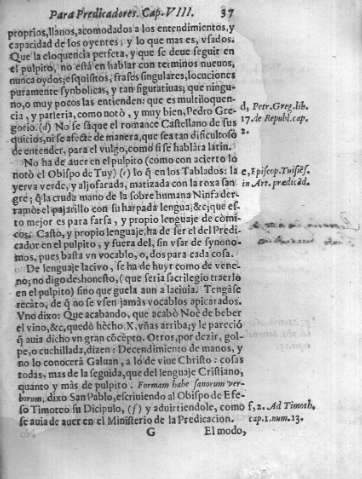 Para Predicadores. Cap. VIII. 37
proprios, llanos, acomodados a los entendimientos, y
capacidad de los oyentes; y lo que mas es, vsados.
Que la eloquencia perfeta, y que se deue seguir en
el pulpito, no està en hablar con terminos nueuos,
nunca oydos; esquisitos, frases singulares, locuciones
puramente symbolicas, y tan figuratiuas, que ningu-
no, o muy pocos las entienden: que es multiloquen-
cia, y parleria, como notò, y muy bien, Pedro Gre-
gorio. (d) No se saque el romance Castellano de sus
quicios, ni se afecte de manera, que sea tan dificultoso
de entender, para el vulgo, como si se hablàra latin.
d, Petr. Greg. lib.
17. de Republ. cap.
2
No ha de auer en el pulpito (como con acierto lo
notò el Obispo de Tuy) (e) lo q̃ en los Tablados: la
yerva verde, y aljofarada, matizada con la roxa san-
gre; q̃ la cruda mano de la sobre humana Ninfa der-
ramò: el pajarillo con su harpada lengua; &c; que es-
to mejor es para farsa, y propio lenguaje de còmi-
cos. Casto, y propio lenguaje, ha de ser el del Predi-
cador en el pulpito, y fuera del, sin vsar de synono-
mos, pues basta vn vocablo, o, dos para cada cosa.
e, Episcop. Tuisẽs.
in Art. predicād.
De lenguaje lacivo, se ha de huyr como de vene-
no; no digo deshonesto, (que seria sacrilegio traerlo
en el pulpito) sino que guela aun a laciuia. Tengase
recato, de q̃ no se vsen jamàs vocablos apicarados.
Vno dixo: Que acabando, que acabò Noè de beber
el vino, &c, quedò hecho, X, vñas arriba; y le pareciò
q̃ auia dicho vn gran còcepto. Otros, por dezir, gol-
pe, o cuchillada, dizen: Decendimiento de manos, y
no lo conocerà Galuan, a lo de viue Christo: cosas
todas, mas de la seguida, que del lenguaje Cristiano,
quanto y màs de pulpito. Formam habe sanorum ver-
borum, dixo San Pablo, escriuiendo al Obispo de Efe-
so Timoteo su Dicipulo, (f) y aduirtiendole, como
se auia de auer en el Ministerio de la Predicacion.
f, 2. Ad Timoth.
cap. 1. num. 13.
G El modo,